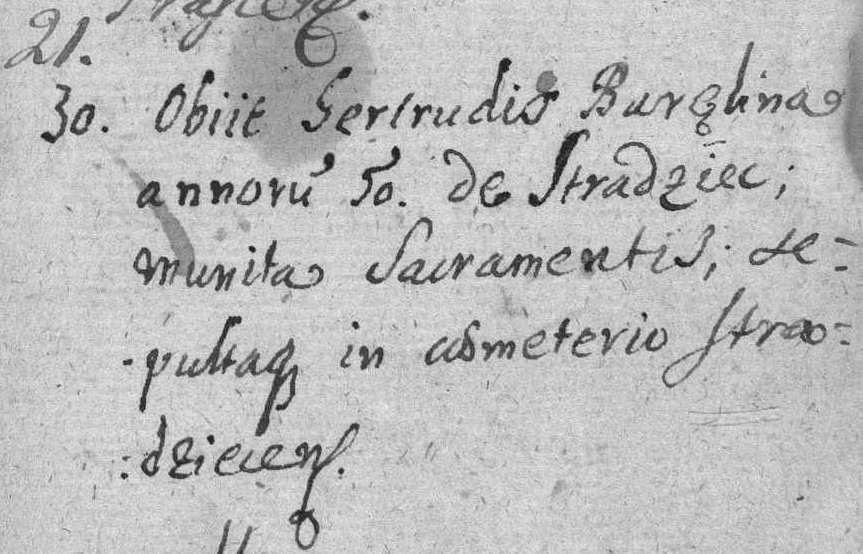 21.
30. Obiit Gertrudis Burglina
annorũ 50. de Stradziec;
munita Sacramentis; se=
pultaq3 in cœmeterio Stra=
:dziecens.